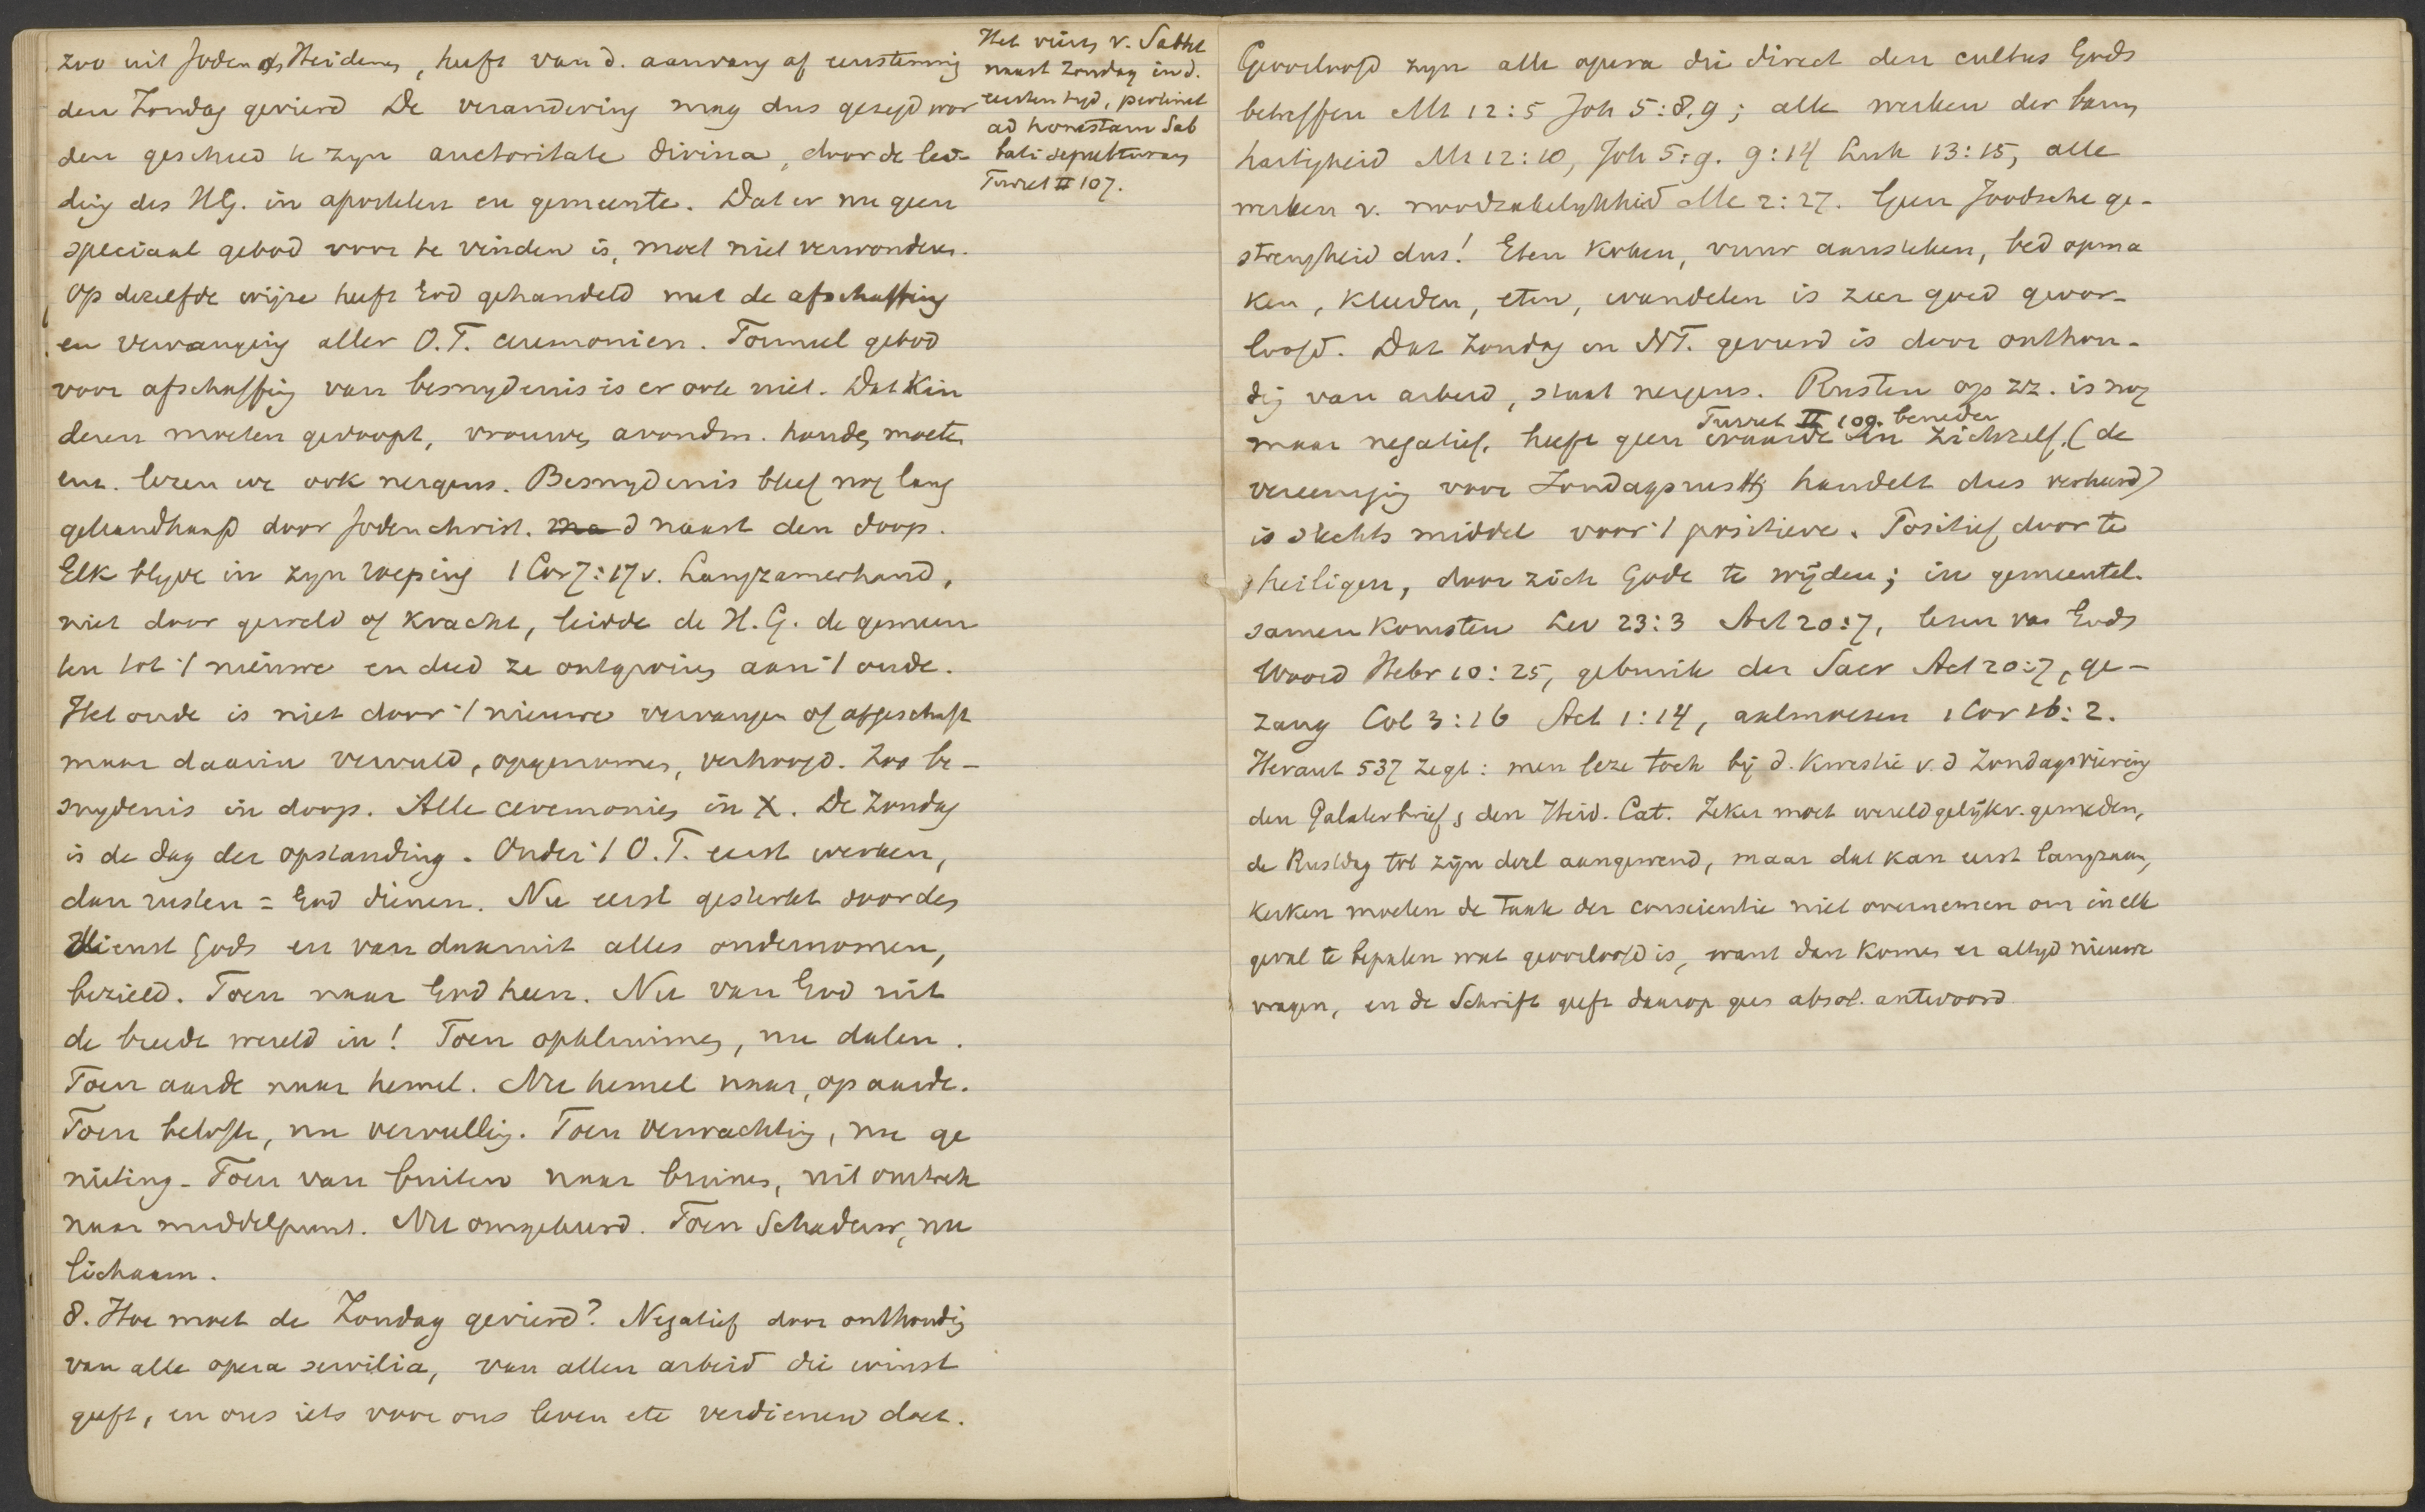 zoo uit Joden als Heidenen, heeft van d. aanvang af eenstemmig
den Zondag gevierd De verandering mag dus gezegd wor
den geschied te zyn auctoritate divina, door de lei-
ding des H.G. in apostelen en gemeente. Dat er nu geen
speciaal gebod voor te vinden is, moet niet verwonderen.
Op dezelfde wijze heeft God gehandeld met de afschaffing
en vervanging aller O.T. ceremonien. Formeel gebod
voor afschaffing van besnydenis is er ook niet. Dat kin
deren moeten gedoopt, vrouwen avondm. houden moeten
enz. lezen we ook nergens. Besnydenis bleef nog lang
gehandhaafd door Jodenchrist. naast den doop.
Elk blyve in zyn roeping 1 Cor 7:17 v. Langzamerhand,
niet door geweld of kracht, leidde de H.G. de gemeen
ten tot 't nieuwe en deed ze ontgroeien aan 't oude.
Het oude is niet door 't nieuwe vervangen of afgeschaft
maar daarin vervuld, opgenomen, verhoogd. Zoo be-
snydenis in doop. Alle ceremonien in X. De Zondag
is de dag der opstanding. Onder 't O.T. eerst werken,
dan rusten = God dienen. Nu eerst gesterkt door den
dienst Gods en van daaruit alles ondernomen,
bezield. Toen naar God heen. Nu van God uit
de breede wereld in! Toen opklimmen, nu dalen.
Toen aarde naar hemel. Nu hemel naar, op aarde.
Toen belofte, nu vervulling. Toen verwachting, nu ge
nieting. Toen van buiten naar binnen, uit omtrek
naar middelpunt. Nu omgekeerd. Toen Schaduw, nu
lichaam.
8. Hoe moet de Zondag gevierd? Negatief door onthouding
van alle opera servilia, van allen arbeid die winst
geeft, en ons iets voor ons leven etc verdienen doet.
Het vieren v. Sabbat
naast Zondag in d.
eersten tyd, pertinet
ad honestam Sab
bati sepulturam
Turret II 107.
Geoorloofd zyn alle opera die direct den cultus Gods
betreffen Mt 12:5 Joh 5:8,9; alle werken der barm
hartigheid Mt 12:10, Joh 5:9. 9:14 Luk 13:15, alle
werken v. noodzakelykheid Mc 2:27. Geen Joodsche ge-
strengheid dus! Eten koken, vuur aansteken, bed opma
ken, kleeden, eten, wandelen is zeer goed geoor-
loofd. Dat Zondag in NT. gevierd is door onthou-
ding van arbeid, staat nergens. Rusten op zz. is nog
Turret II 109. beneden
maar negatief, heeft geen waarde in zichzelf, (de
vereeniging voor Zondagsrust handelt dus verkeerd)
is slechts middel voor 't positieve. Positief door te
heiligen, door zich Gode te wijden; in gemeentel.
samenkomsten Lev 23:3 Act 20:7, lezen van Gods
Woord Hebr 10:25, gebruik der Sacr Act 20:7, ge-
zang Col 3:16 Act 1:14, aalmoezen 1 Cor 16:2.
Heraut 537 zegt: men leze toch bij d. kwestie v. d Zondagsviering
den Galaterbrief, den Heid. Cat. Zeker moet wereldgelijkv. gemeden,
de Rustdag tot zijn doel aangewend, maar dat kan eerst langzaam,
kerken moeten de taak der conscientie niet overnemen om in elk
geval te bepalen wat geoorloofd is, want dan komen er altyd nieuwe
vragen, en de Schrift geeft daarop geen absol. antwoord